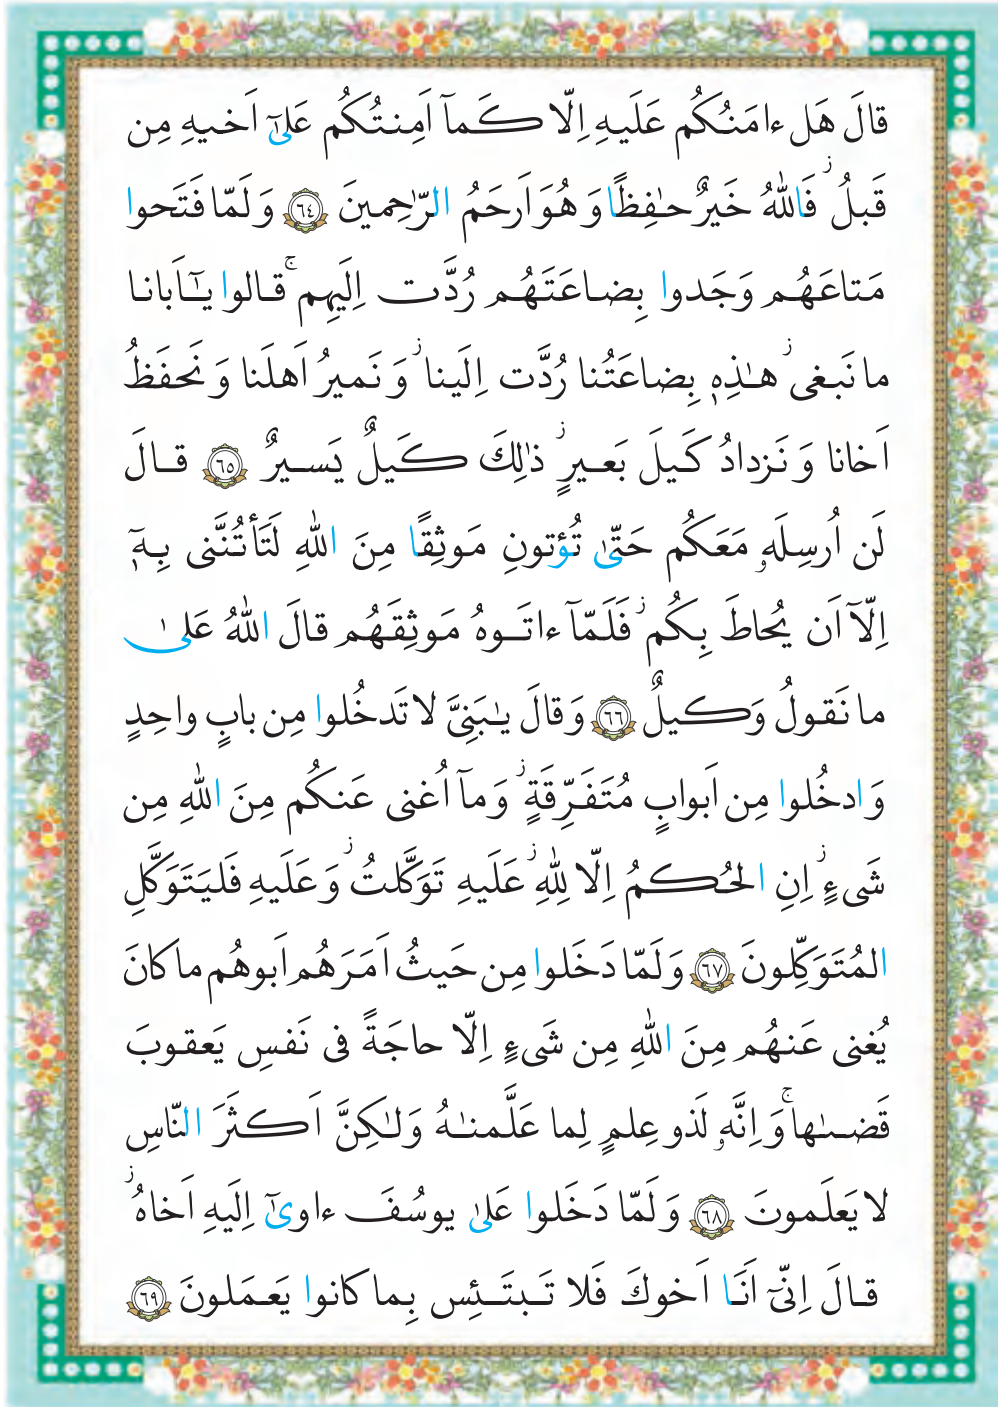 قالَ هَل ءامَنُكُم عَلَيهِ اِلّا كَمآ اَمِنتُكُم عَلىٰٓ اَخيهِ مِن
قَبلُ ۖ فَاللهُ خَيرٌ حٰفِظًا وَ هُوَ اَرحَمُ الرّٰحِمينَ ﴿٦٤﴾ وَ لَمّا فَتَحوا
مَتاعَهُم وَجَدوا بِضاعَتَهُم رُدَّت اِلَيهِم ۚ قالوا يٰٓاَبانا
ما نَبغى ۖ هـٰذِهٖ بِضاعَتُنا رُدَّت اِلَينا ۖ وَ نَميرُ اَهلَنا وَ نَحفَظُ
اَخانا وَ نَزدادُ كَيلَ بَعيرٍ ۖ ذٰلِكَ كَيلٌ يَسيرٌ ﴿٦٥﴾ قالَ
لَن اُرسِلَهٗ مَعَكُم حَتّىٰ تُؤتونِ مَوثِقًا مِنَ اللهِ لَتَأتُنَّنى بِهٖٓ
اِلّآ اَن يُحاطَ بِكُم ۖ فَلَمّآ ءاتَوهُ مَوثِقَهُم قالَ اللهُ عَلىٰ
ما نَقولُ وَكيلٌ ﴿٦٦﴾ وَ قالَ يٰبَنِىَّ لا تَدخُلوا مِن بابٍ واحِدٍ
وَ ادخُلوا مِن اَبوابٍ مُتَفَرِّقَةٍ ۖ وَ مآ اُغنى عَنكُم مِنَ اللهِ مِن
شَىءٍ ۖ اِنِ الحُكمُ اِلّا لِلّٰهِ ۖ عَلَيهِ تَوَكَّلتُ ۖ وَ عَلَيهِ فَليَتَوَكَّلِ
المُتَوَكِّلونَ ﴿٦٧﴾ وَ لَمّا دَخَلوا مِن حَيثُ اَمَرَهُم اَبوهُم ما كانَ
يُغنى عَنهُم مِنَ اللهِ مِن شَىءٍ اِلّا حاجَةً فى نَفسِ يَعقوبَ
قَضىٰها ۚ وَ اِنَّهٗ لَذو عِلمٍ لِما عَلَّمنٰهُ وَلٰكِنَّ اَكثَرَ النّاسِ
لا يَعلَمونَ ﴿٦٨﴾ وَ لَمّا دَخَلوا عَلىٰ يوسُفَ ءاوىٰٓ اِلَيهِ اَخاهُ ۖ
قالَ اِنّىٓ اَنَا اَخوكَ فَلا تَبتَئِس بِما كانوا يَعمَلونَ ﴿٦٩﴾